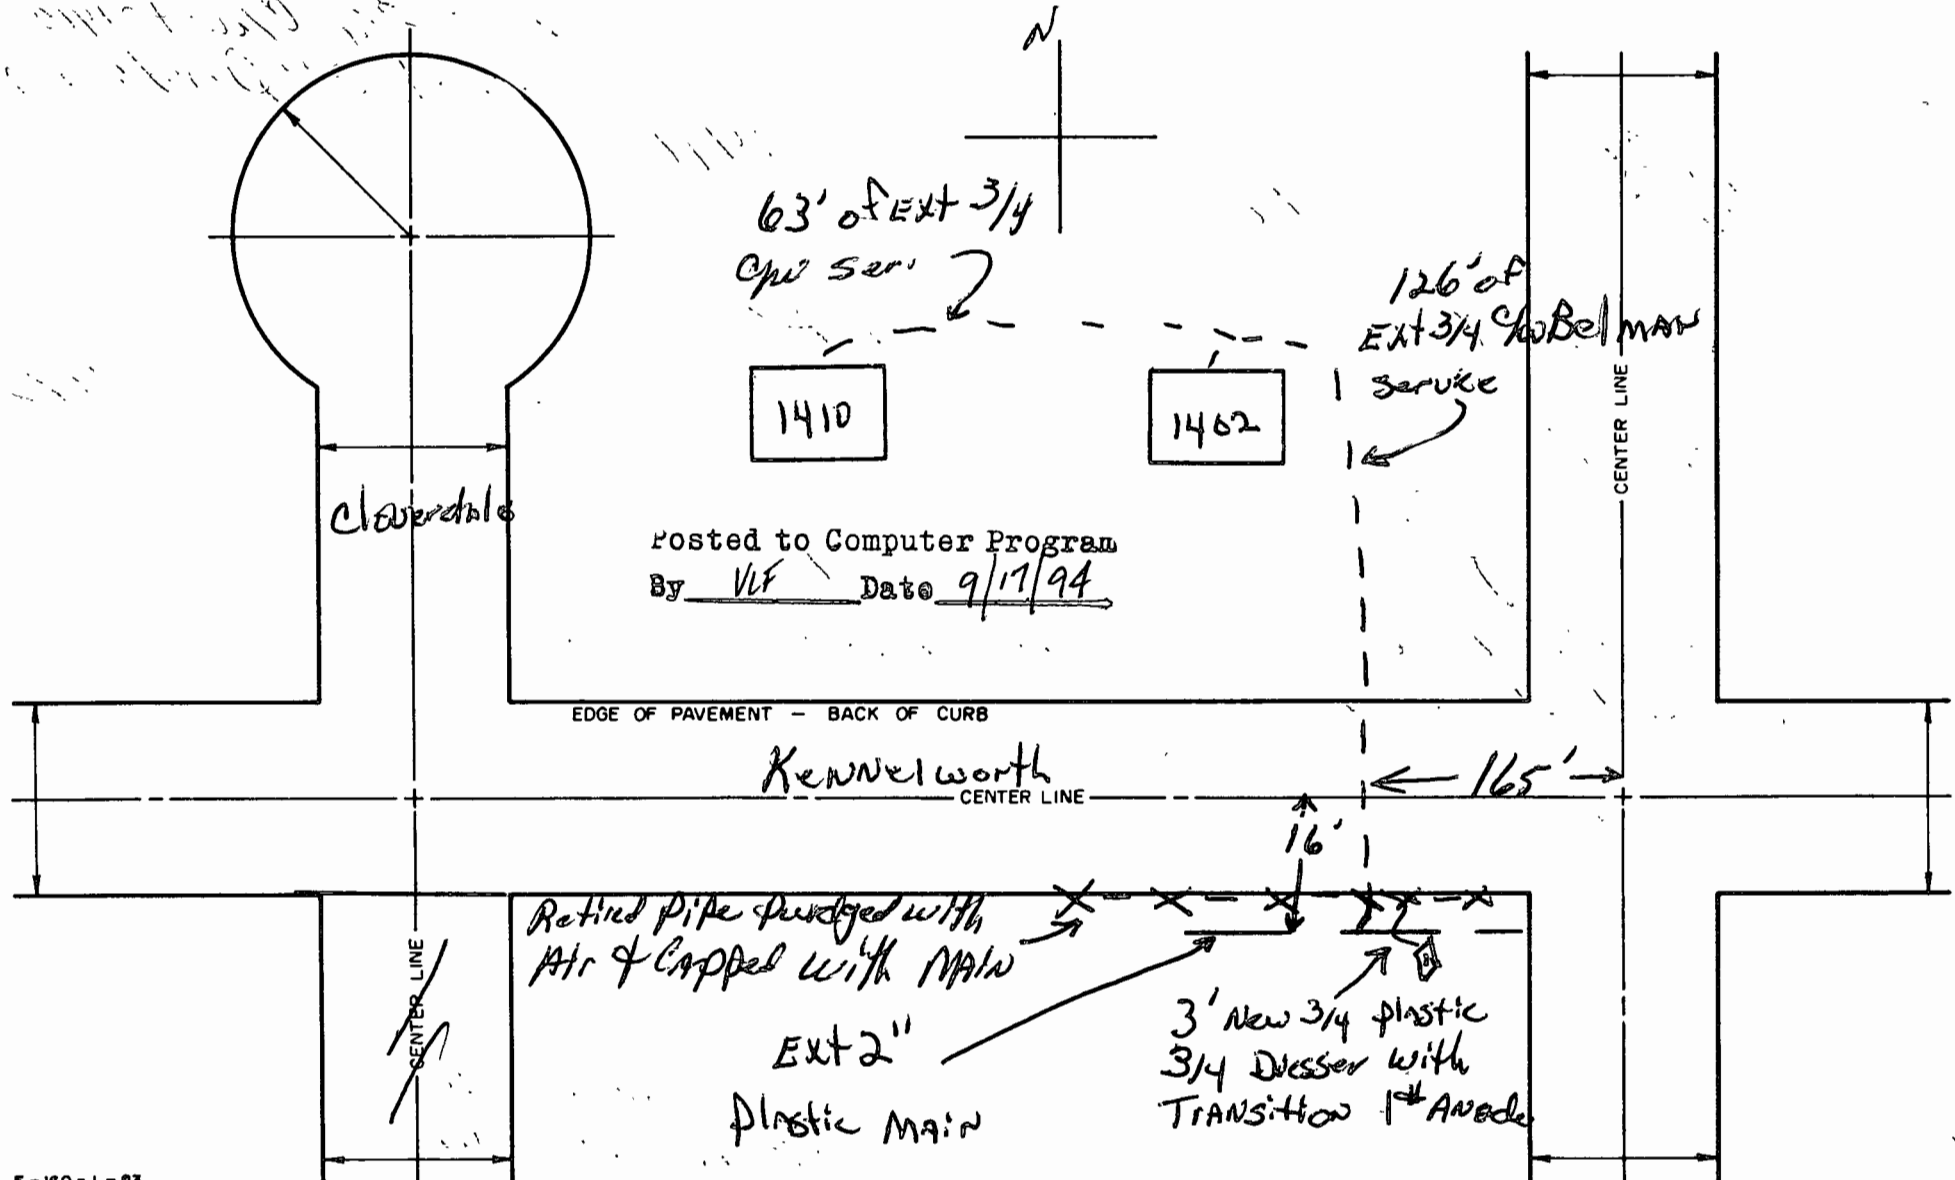 N
63' of Ext 3/4
Ser.
126' of
Ext 3/4 Bel MAN
Service
1410
1402
CENTER LINE
Cloverdale
Posted to Computer Program
By VLF Date 9/17/94
EDGE OF PAVEMENT — BACK OF CURB
Kennelworth
CENTER LINE
165'
16'
Retired Pipe Purdged with
Air & Capped with MAIN
CENTER LINE
Ext 2"
Plastic MAIN
3' New 3/4 plastic
3/4 Dresser with
TRANSITION 1# Anode